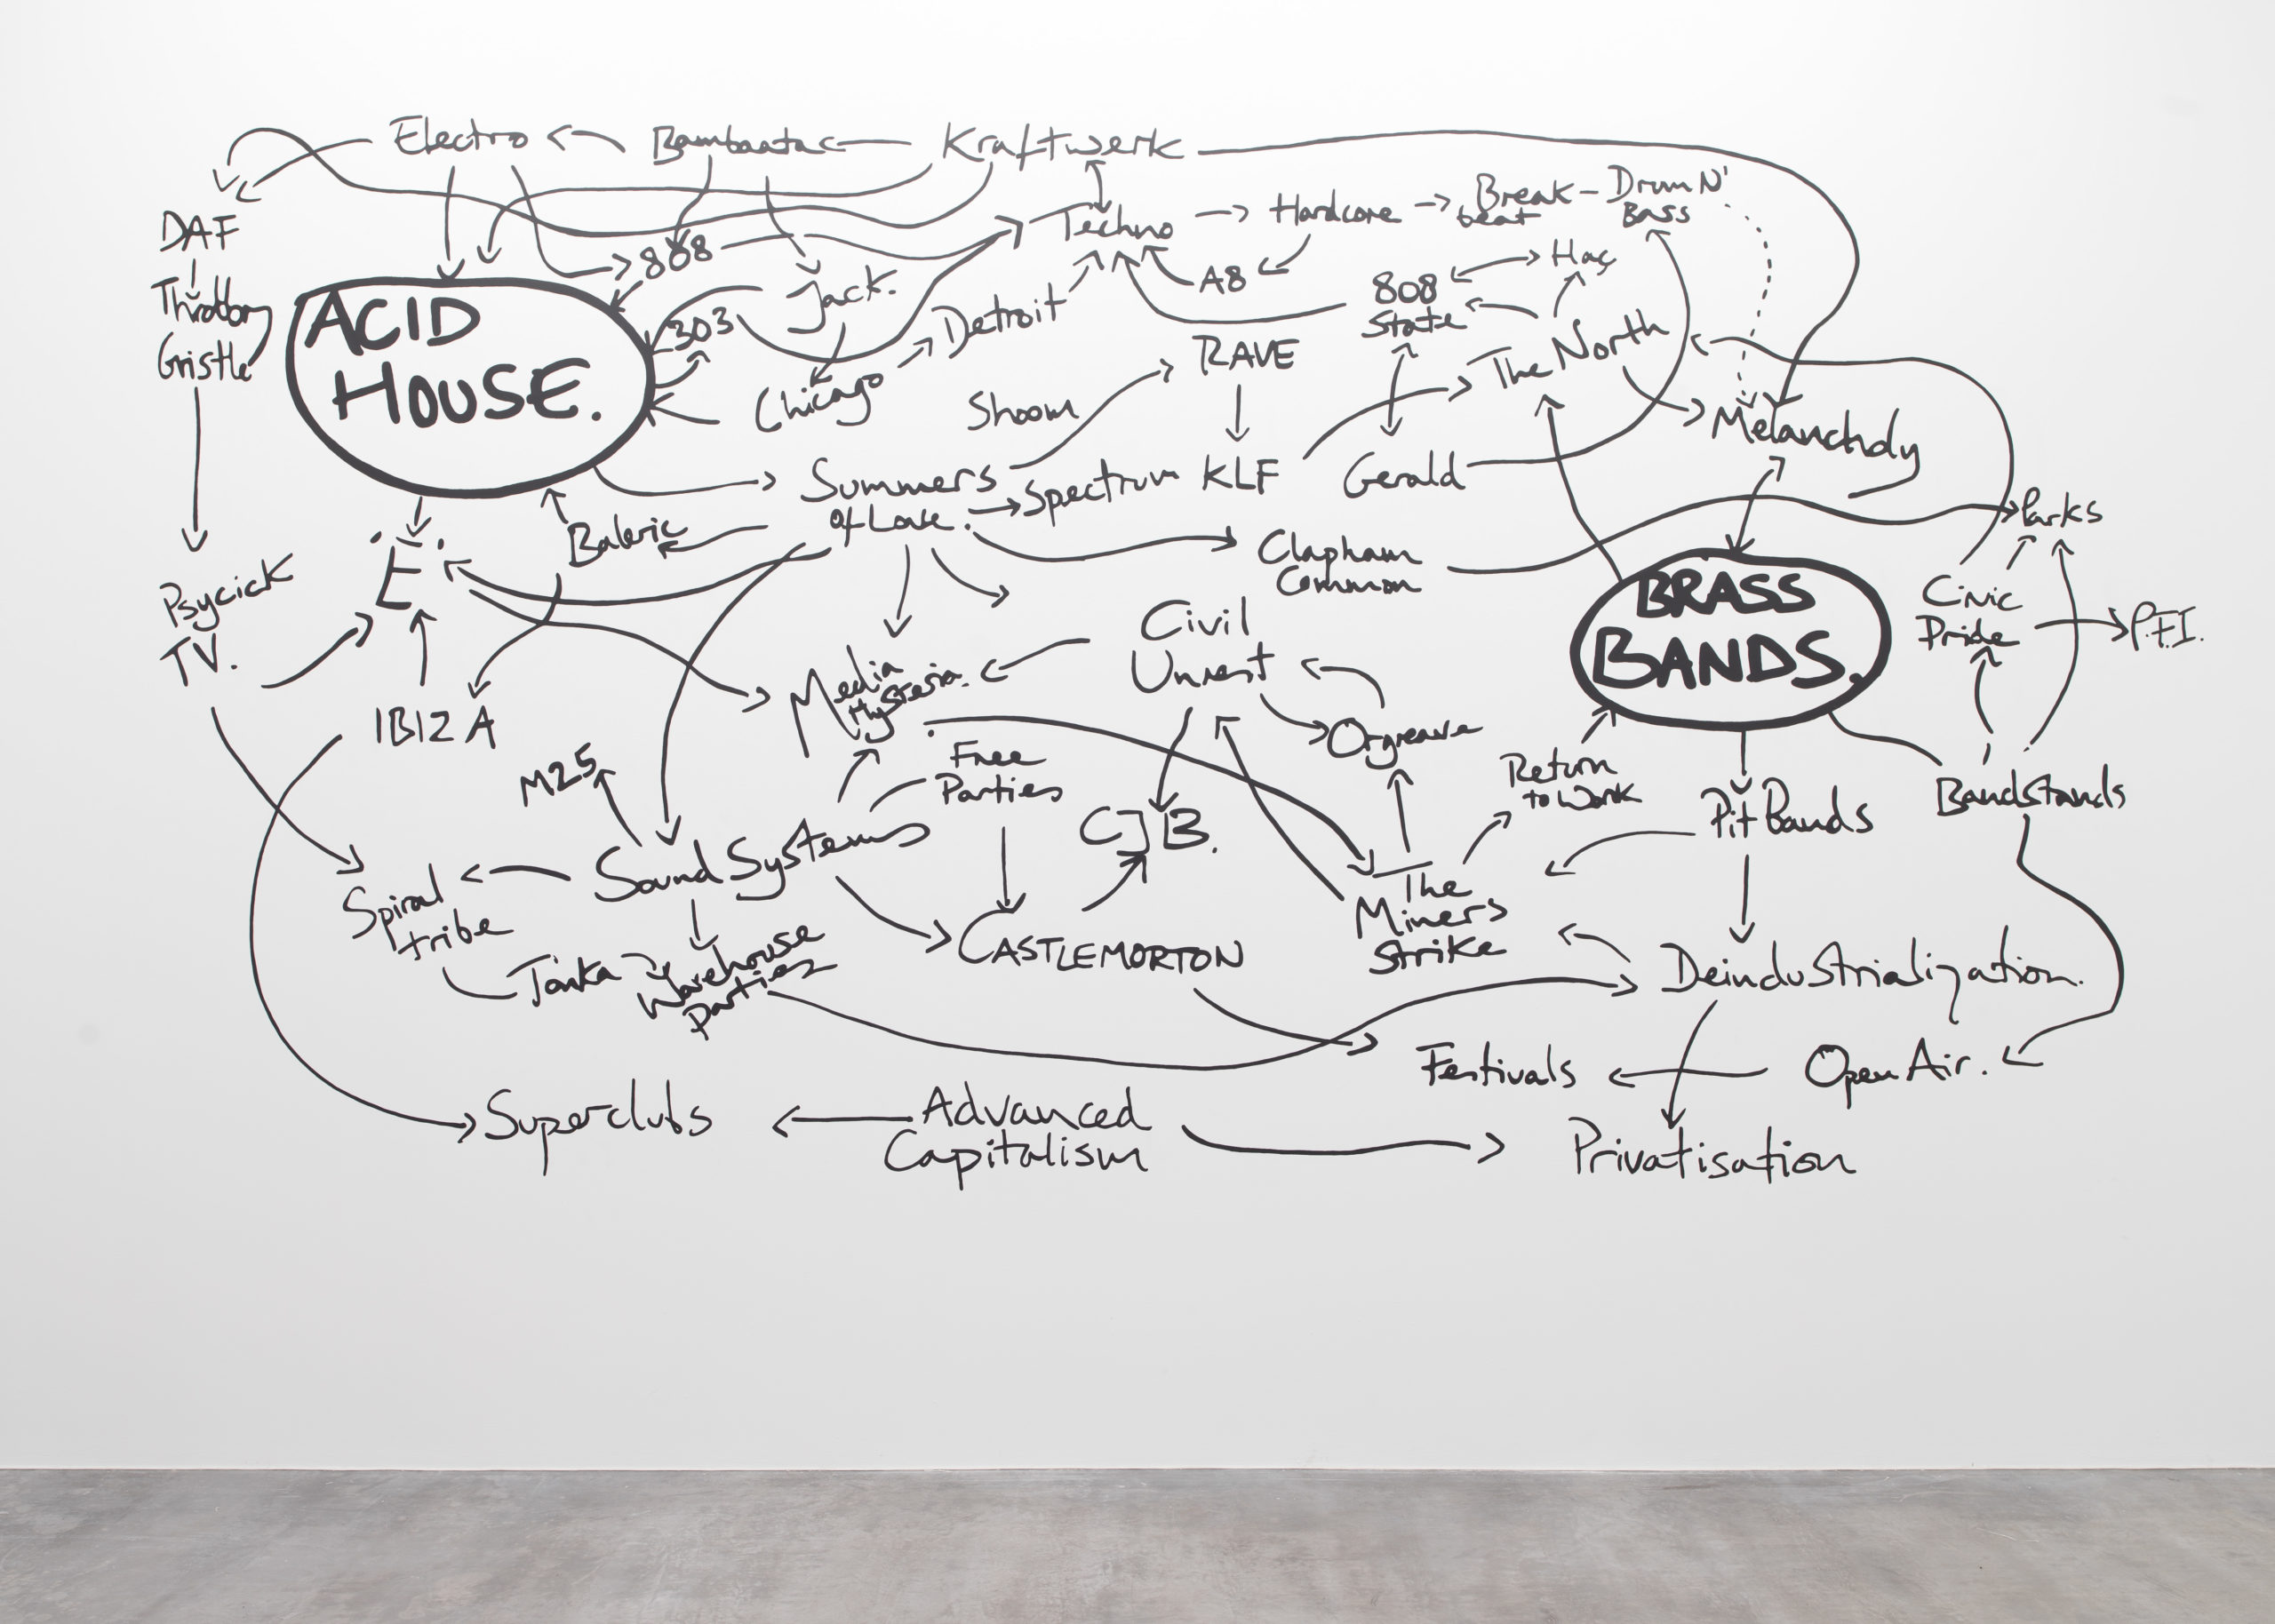 Electro
Bambaataa
Kraftwerk
DAF
Throbbing
Gristle
808
Jack.
Techno
Hardcore
Break
beat
Drum N'
Bass
ACID
HOUSE.
303
Chicago
Detroit
A8
808
State
Haç
The North
RAVE
Shoom
Melancholy
Summers
of Love.
Spectrum
KLF
Gerald
Baleric
'E'
Clapham
Common
Parks
Psycick
TV.
IBIZA
Media
Hysteria.
Civil
Unrest
BRASS
BANDS.
Civic
Pride
P.F.I.
Orgreave
M25
Free
Parties
Return
to Work
Pit Bands
Bandstands
Sound Systems
CJB.
Spiral
tribe
Tonka
Warehouse
Parties
CASTLEMORTON
The
Miners
Strike
Deindustrialization.
Festivals
Open Air.
Superclubs
Advanced
Capitalism
Privatisation